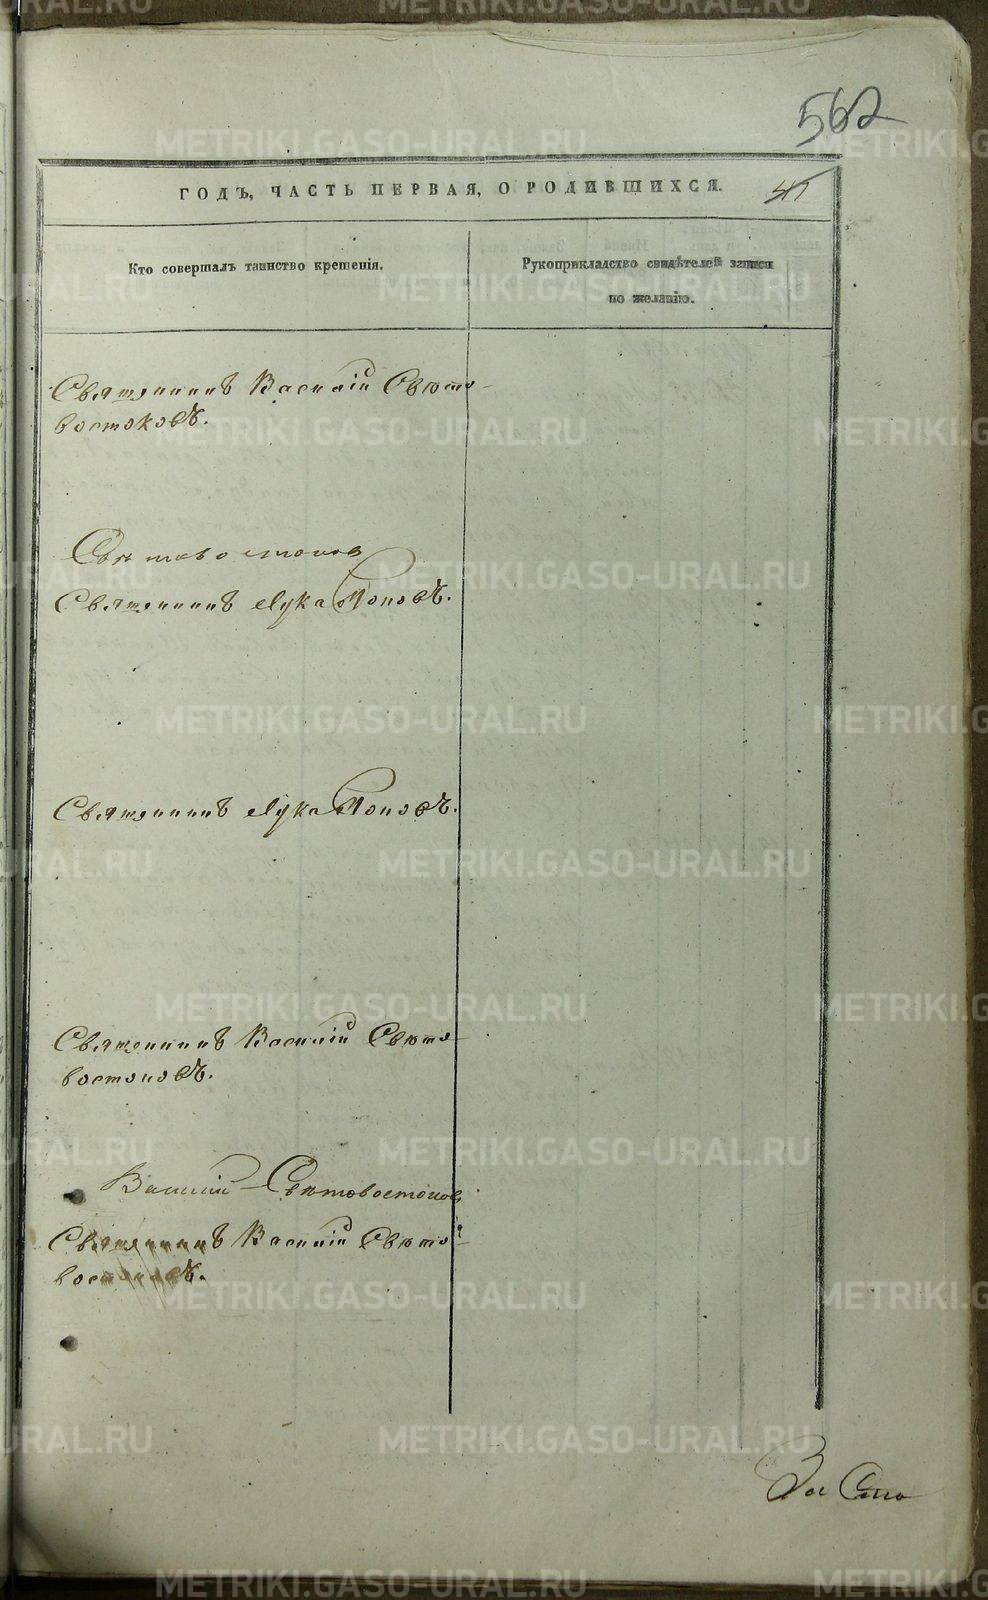 562
ГОДЪ, ЧАСТЬ ПЕРВАЯ, О РОДИВШИХСЯ.
Кто совершалъ таинство крещенія.
Рукоприкладство свидѣтелей записи
по желанію.
Священникъ Василій Свѣто-
востоковъ.
Священникъ Лука Поповъ.
Священникъ Лука Поповъ.
Священникъ Василій Свѣто-
востоковъ.
Василий Свѣтовостоковъ
Священникъ Василій Свѣто-
востоковъ.
METRIKI.GASO-URAL.RU